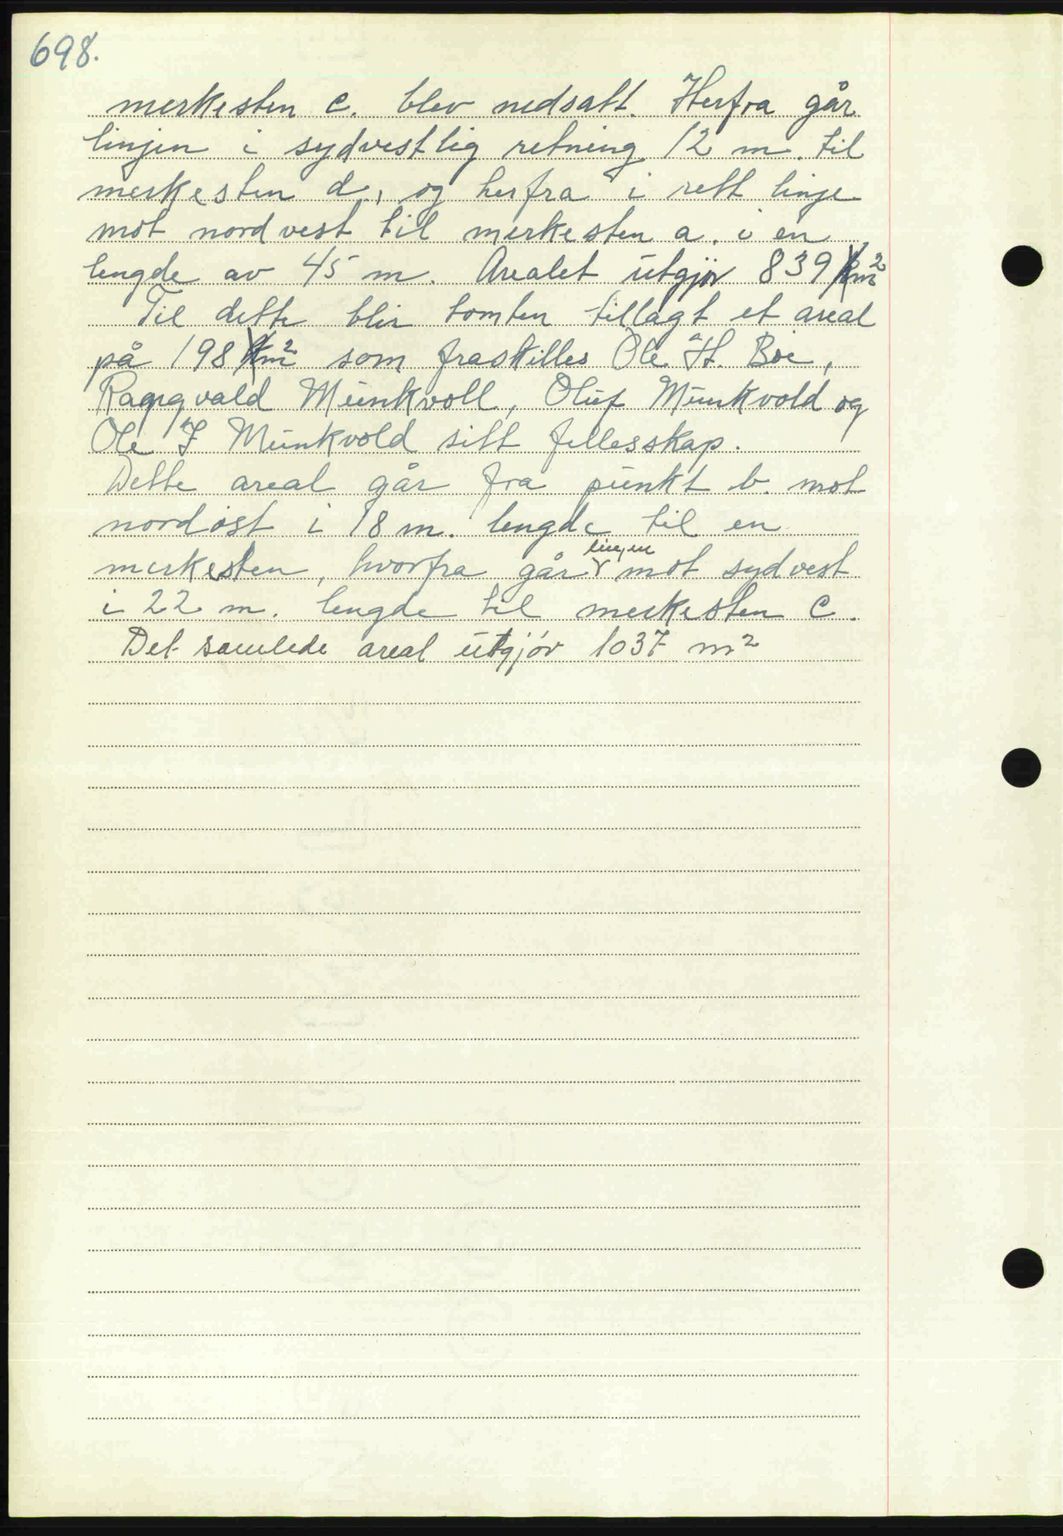 698.
merkesten c. blev nedsatt. Herfra går
linjen i sydvestlig retning 12 m. til
merkesten d, og herfra i rett linje
mot nordvest til merkesten a. i en
lengde av 45 m. Arealet utgjør 839 m²
Til dette blir tomten tillagt et areal
på 198 m² som fraskilles Ole H. Böe,
Ragnvald Munkvoll, Oluf Munkvold og
Ole J Munkvold sitt fellesskap.
Dette areal går fra punkt b. mot
nordöst i 18 m. lengde til en
merkesten, hvorfra går linjen mot sydvest
i 22 m. lengde til merkesten c.
Det samlede areal utgjör 1037 m²